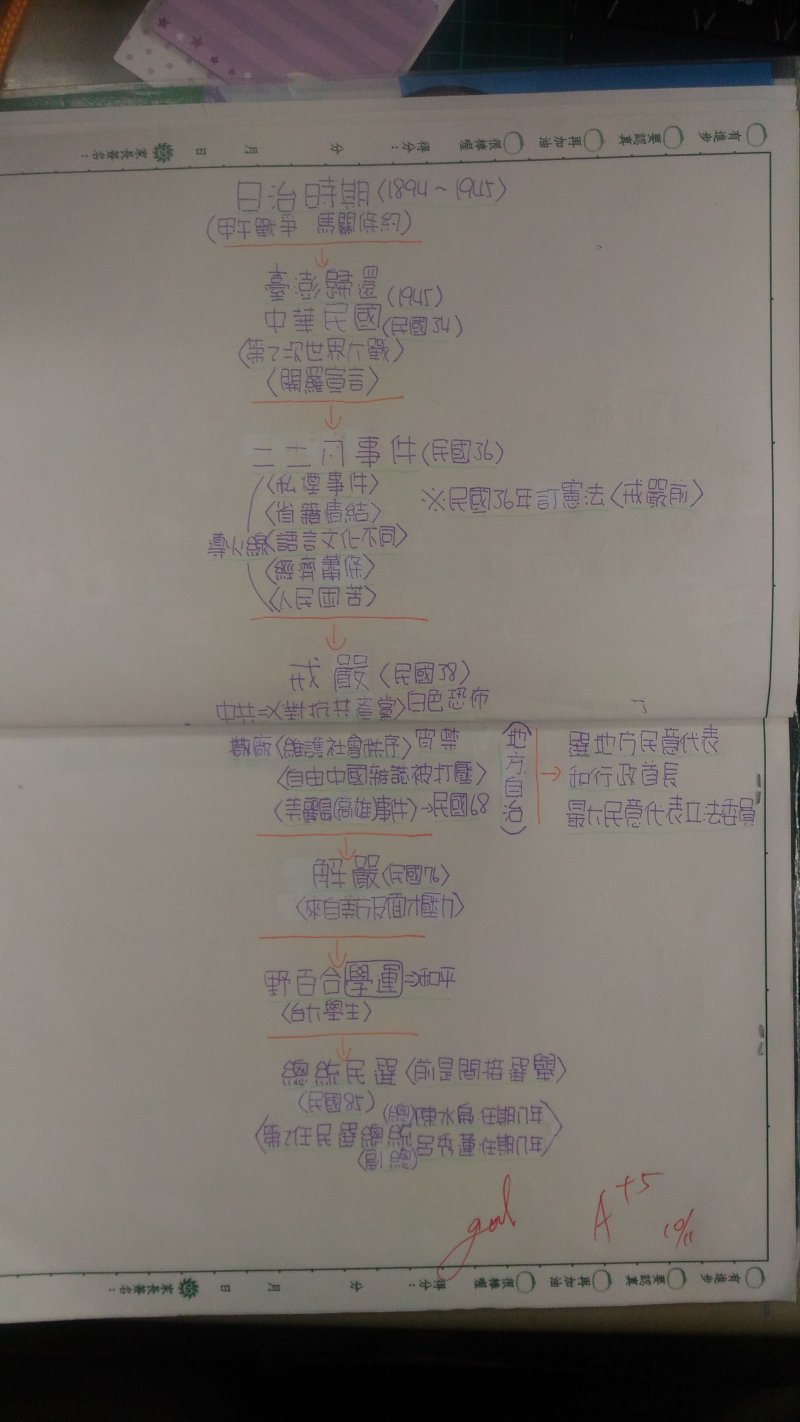 有進步 要認真 再加油 很棒喔 得分： 分 月 日 家長簽名：
日治時期(1894～1945)
(甲午戰爭 馬關條約)
↓
臺澎歸還(1945)
中華民國(民國34)
〈第2次世界大戰〉
〈開羅宣言〉
↓
二二八事件(民國36)
〈私煙事件〉
※民國36年訂憲法〈戒嚴前〉
〈省籍情結〉
導火線〈語言文化不同〉
〈經濟蕭條〉
〈人民困苦〉
↓
戒嚴〈民國38〉
中共⇒〈對抗共產黨〉白色恐怖
〈維護社會秩序〉宵禁
〈自由中國雜誌被打壓〉
〈美麗島(高雄)事件〉→民國68
(地方自治)
→
選地方民意代表
和行政首長
最大民意代表立法委員
↓
解嚴〈民國76〉
↓
野百合學運⇒和平
〈台大學生〉
↓
總統民選〈前是間接選舉〉
(民國85)
(總)陳水扁任期8年
〈第2任民選總統
呂秀蓮任期8年〉
(副總)
good
A+5
10/11
有進步 要認真 再加油 很棒喔 得分： 分 月 日 家長簽名：